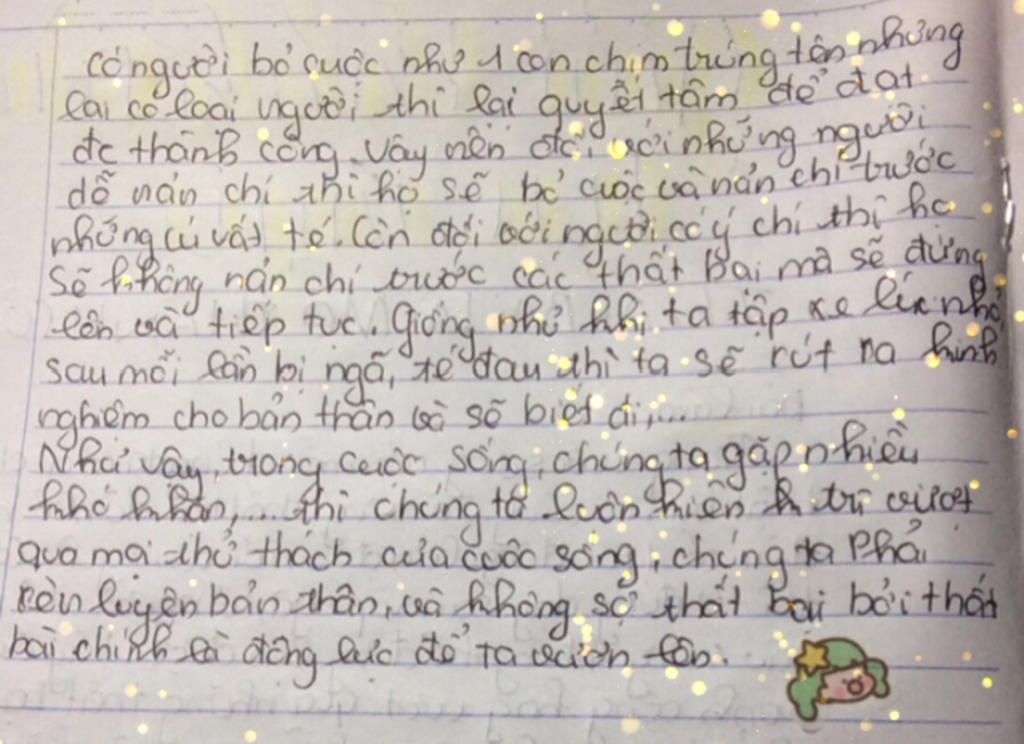 Có người bỏ cuộc như 1 con chim trúng tên nhưng
lại có loại người thì lại quyết tâm để đạt
đc thành công. Vậy nên đối với những người
dễ nản chí thì họ sẽ bỏ cuộc và nản chí trước
những cú vấp té. Còn đối với người có ý chí thì họ
sẽ không nản chí trước các thất bại mà sẽ đứng
lên và tiếp tục. Giống như khi ta tập xe lúc nhỏ
sau mỗi lần bị ngã, té đau thì ta sẽ rút ra kinh
nghiệm cho bản thân và sẽ biết đi,...
Như vậy, trong cuộc sống, chúng ta gặp nhiều
khó khăn,... thì chúng ta luôn kiên trì vượt
qua mọi thử thách của cuộc sống, chúng ta phải
rèn luyện bản thân, và không sợ thất bại bởi thất
bại chính là động lực để ta vươn lên.